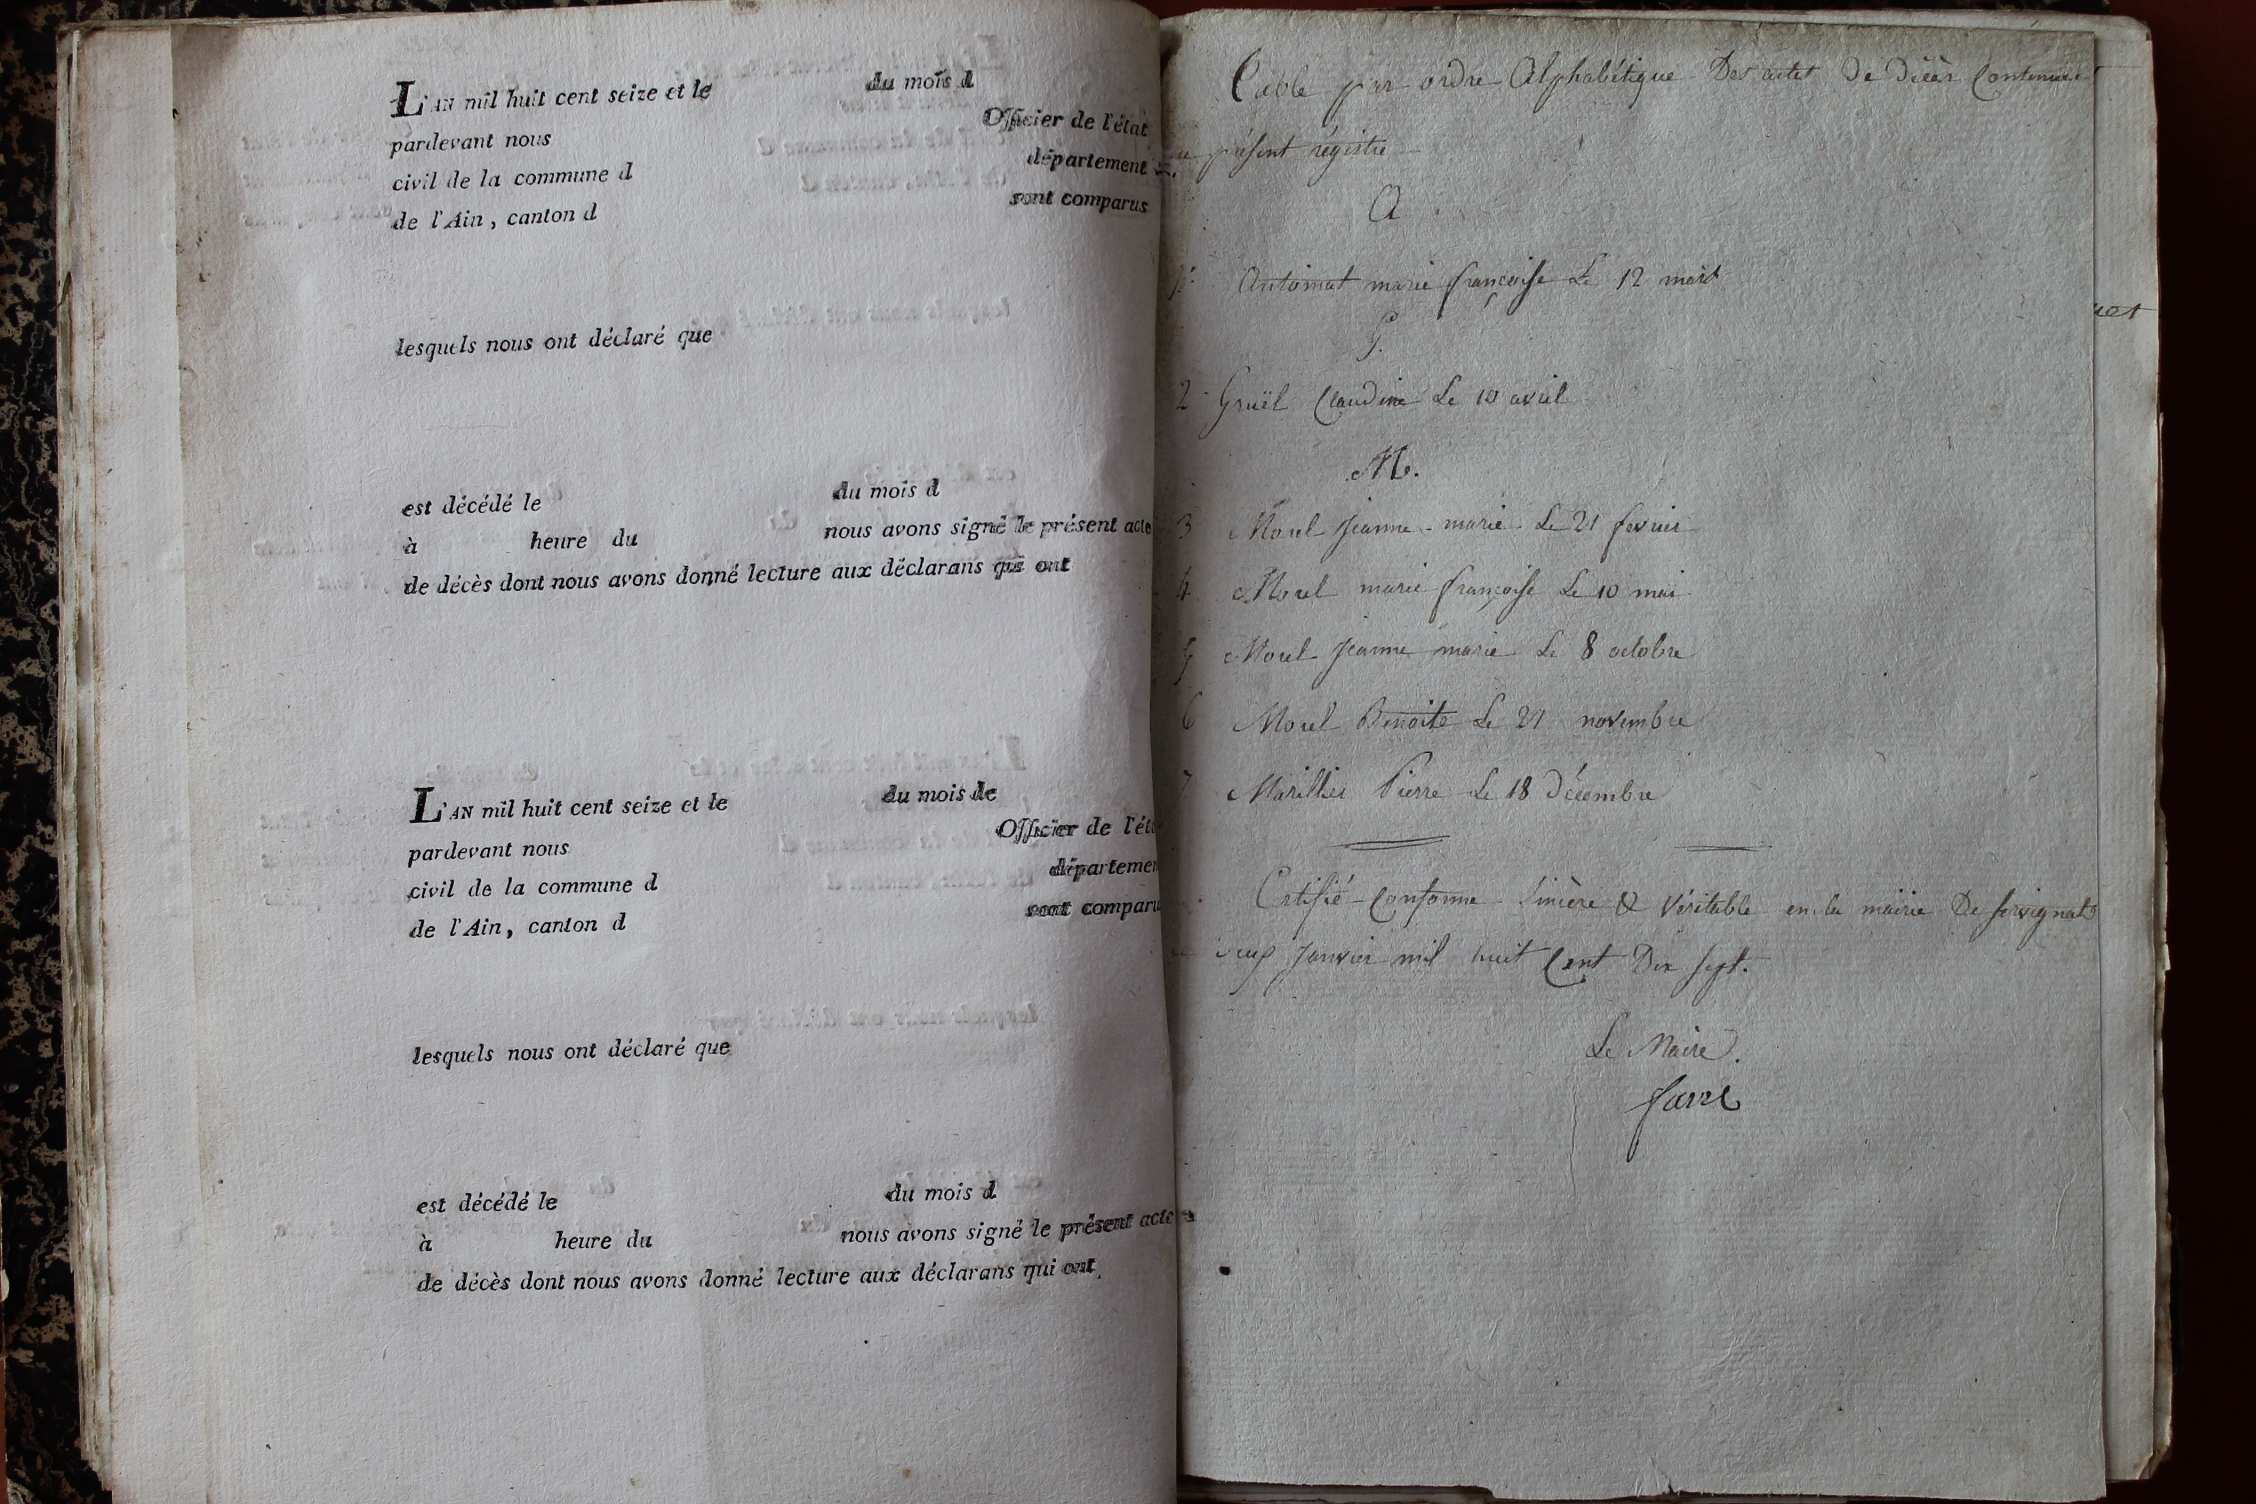 L'AN mil huit cent seize et le du mois d
pardevant nous Officier de l'état
civil de la commune d département
de l'Ain, canton d sont comparus
lesquels nous ont déclaré que
est décédé le du mois d
à heure du nous avons signé le présent acte
de décès dont nous avons donné lecture aux déclarans qui ont
L'AN mil huit cent seize et le du mois de
pardevant nous Officier de l'éta
civil de la commune d départemen
de l'Ain, canton d sont comparu
lesquels nous ont déclaré que
est décédé le du mois d
à heure du nous avons signé le présent acte
de décès dont nous avons donné lecture aux déclarans qui ont
Table par ordre Alphabétique Des actes De Décès Contenues
présent régistre
A
Antoinat marie françoise Le 12 mars
G.
2 Gruël Claudine Le 10 avril
M.
3 Morel Jeanne marie Le 21 fevrier
4 Morel marie françoise Le 10 mai
5 Morel Jeanne marie Le 8 octobre
6 Morel Benoite Le 21 novembre
7 Marillier Pierre Le 18 Décembre
Certifié Conforme Sincère & Véritable en la mairie De servignat
Janvier mil huit Cent Dix sept.
Le Maire.
favre